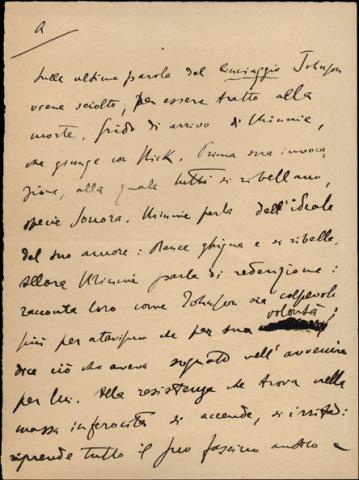 A
Sulle ultime parole del linciaggio Johnson
viene sciolto, per essere tratto alla
morte. Grido di arrivo di Minnie,
che giunge con Nick. Prima sua invoca-
zione, alla quale tutti si ribellano,
specie Sonora. Minnie parla dell'ideale
del suo amore: Rance ghigna e si ribella.
Allora Minnie parla di redenzione:
racconta loro come Johnson sia colpevole
più per atavismo che per sua volontà;
dice ciò che aveva sognato nell'avvenire
per lui. Alla resistenza che trova nella
massa inferocita si accende, si irrita:
riprende tutto il suo fascino antico e